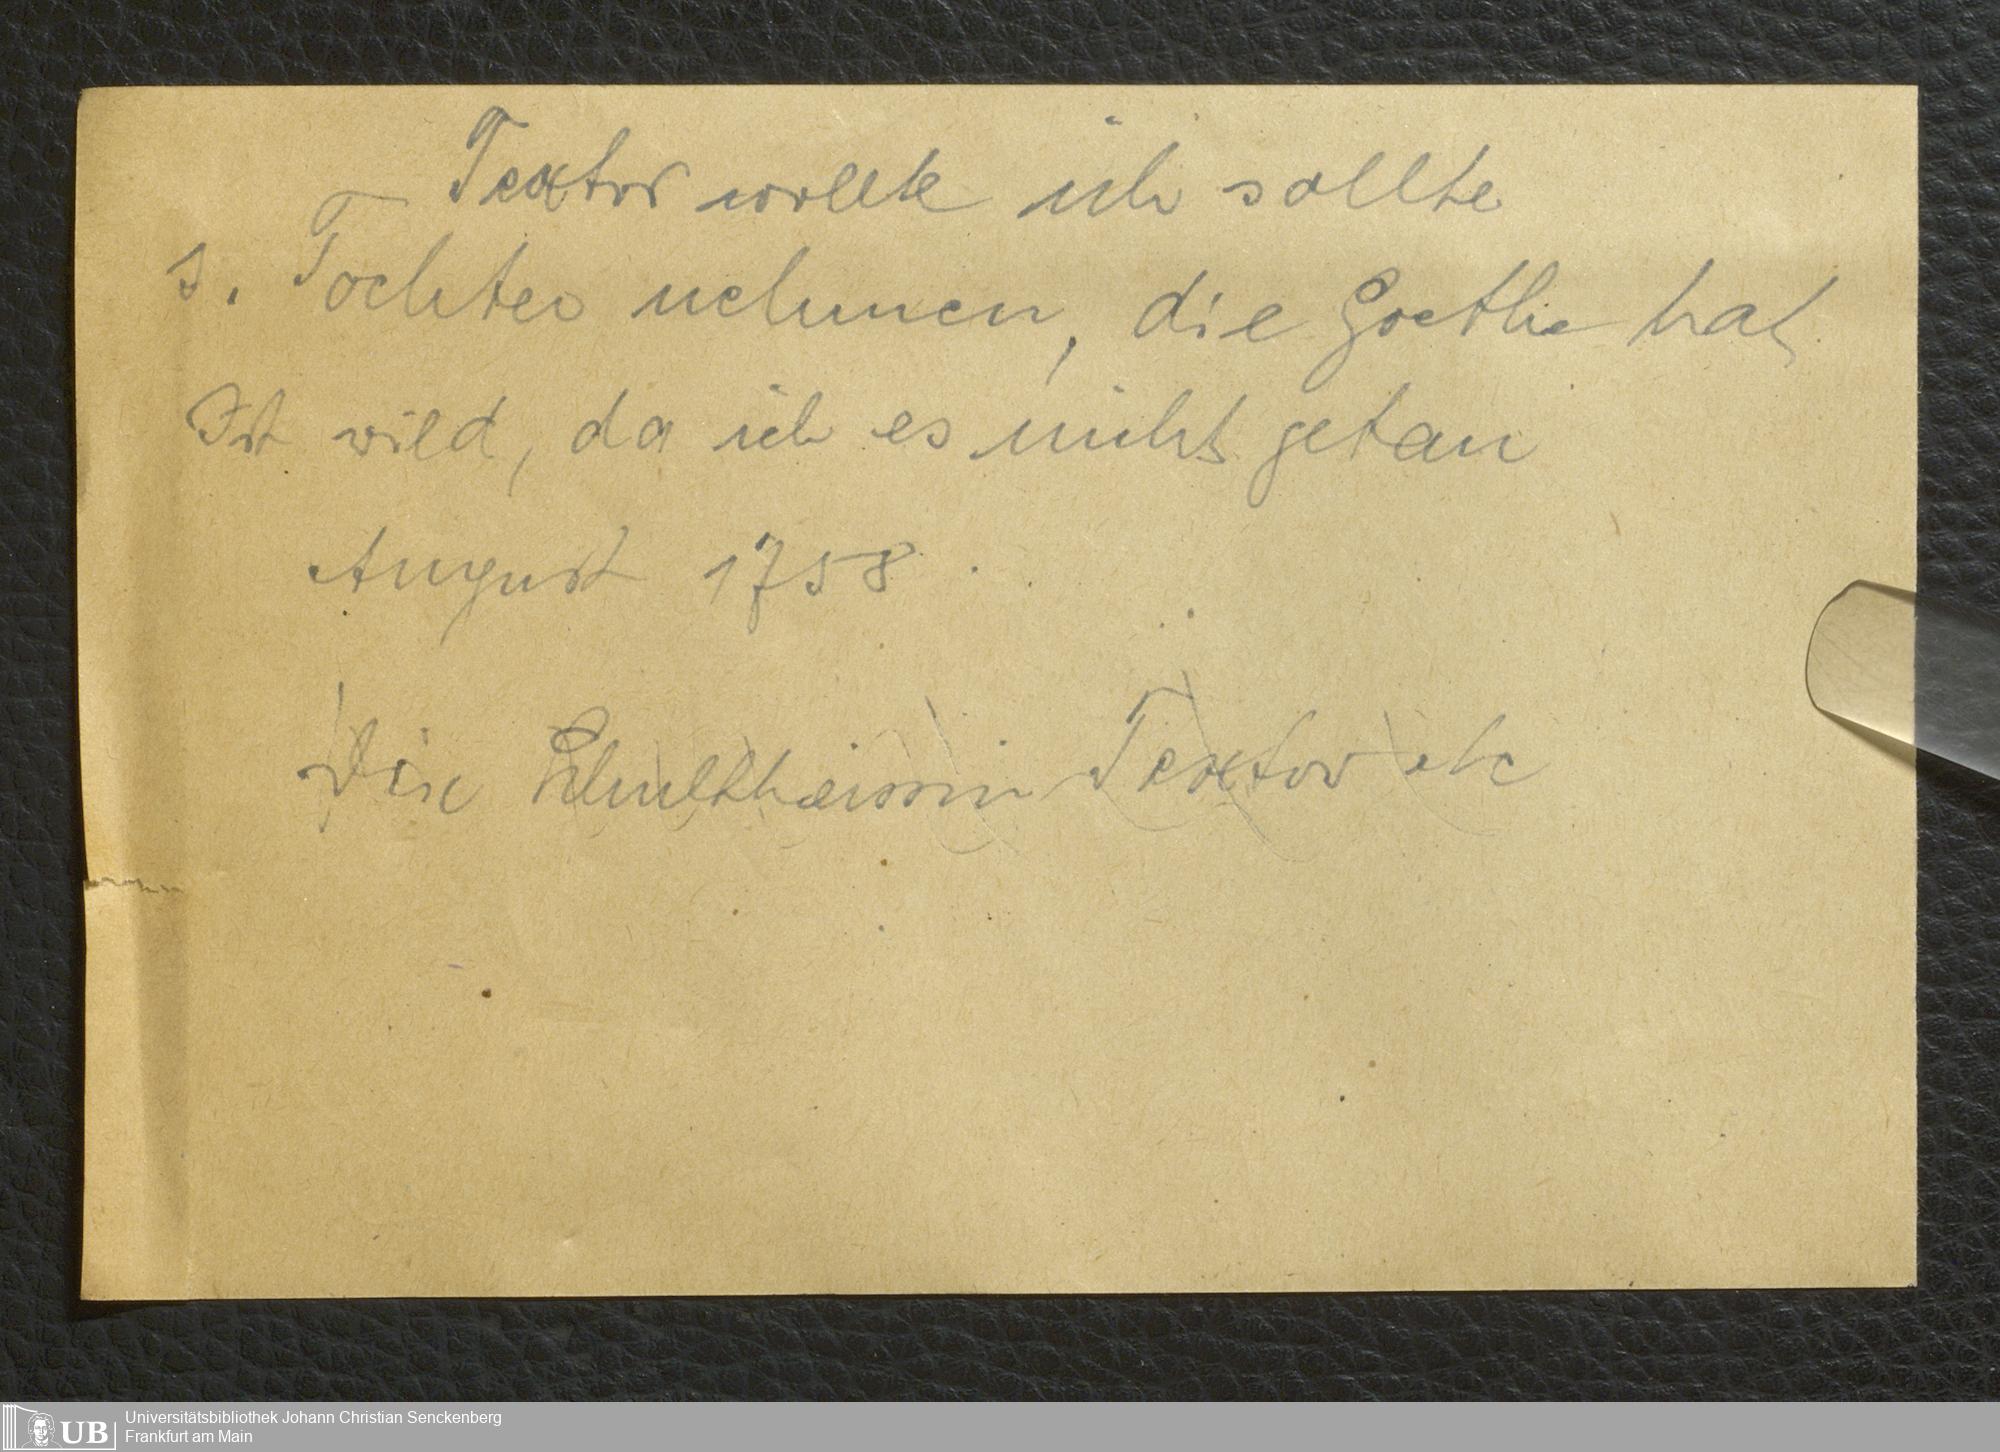 Textor wollte ich sollte
s. Tochter nehmen, die Goethe hat,
Ist wild, da ich es nicht getan
August 1758.
Die Schultheissin Textor etc
UB Universitätsbibliothek Johann Christian Senckenberg
Frankfurt am Main